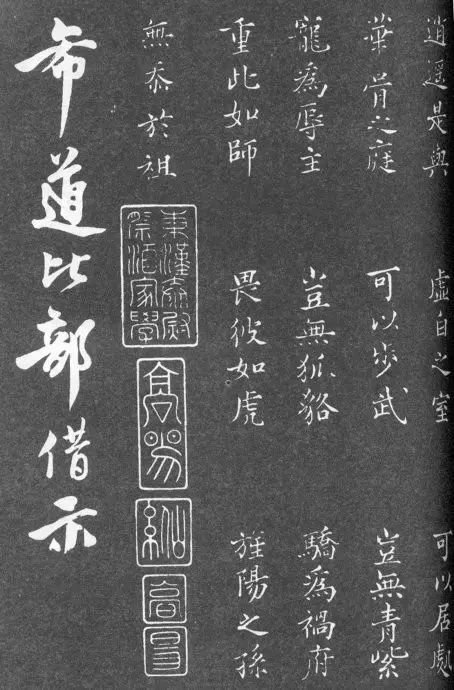 逍遥是與 虛白之室 可以居處
華胥之庭 可以步武 豈無青紫
寵爲辱主 豈無狐貉 驕爲禍府
重此如師 畏彼如虎 旌陽之孫
無忝於祖
東漢太尉
祭酒家學
高昜
高昜
希道比部借示